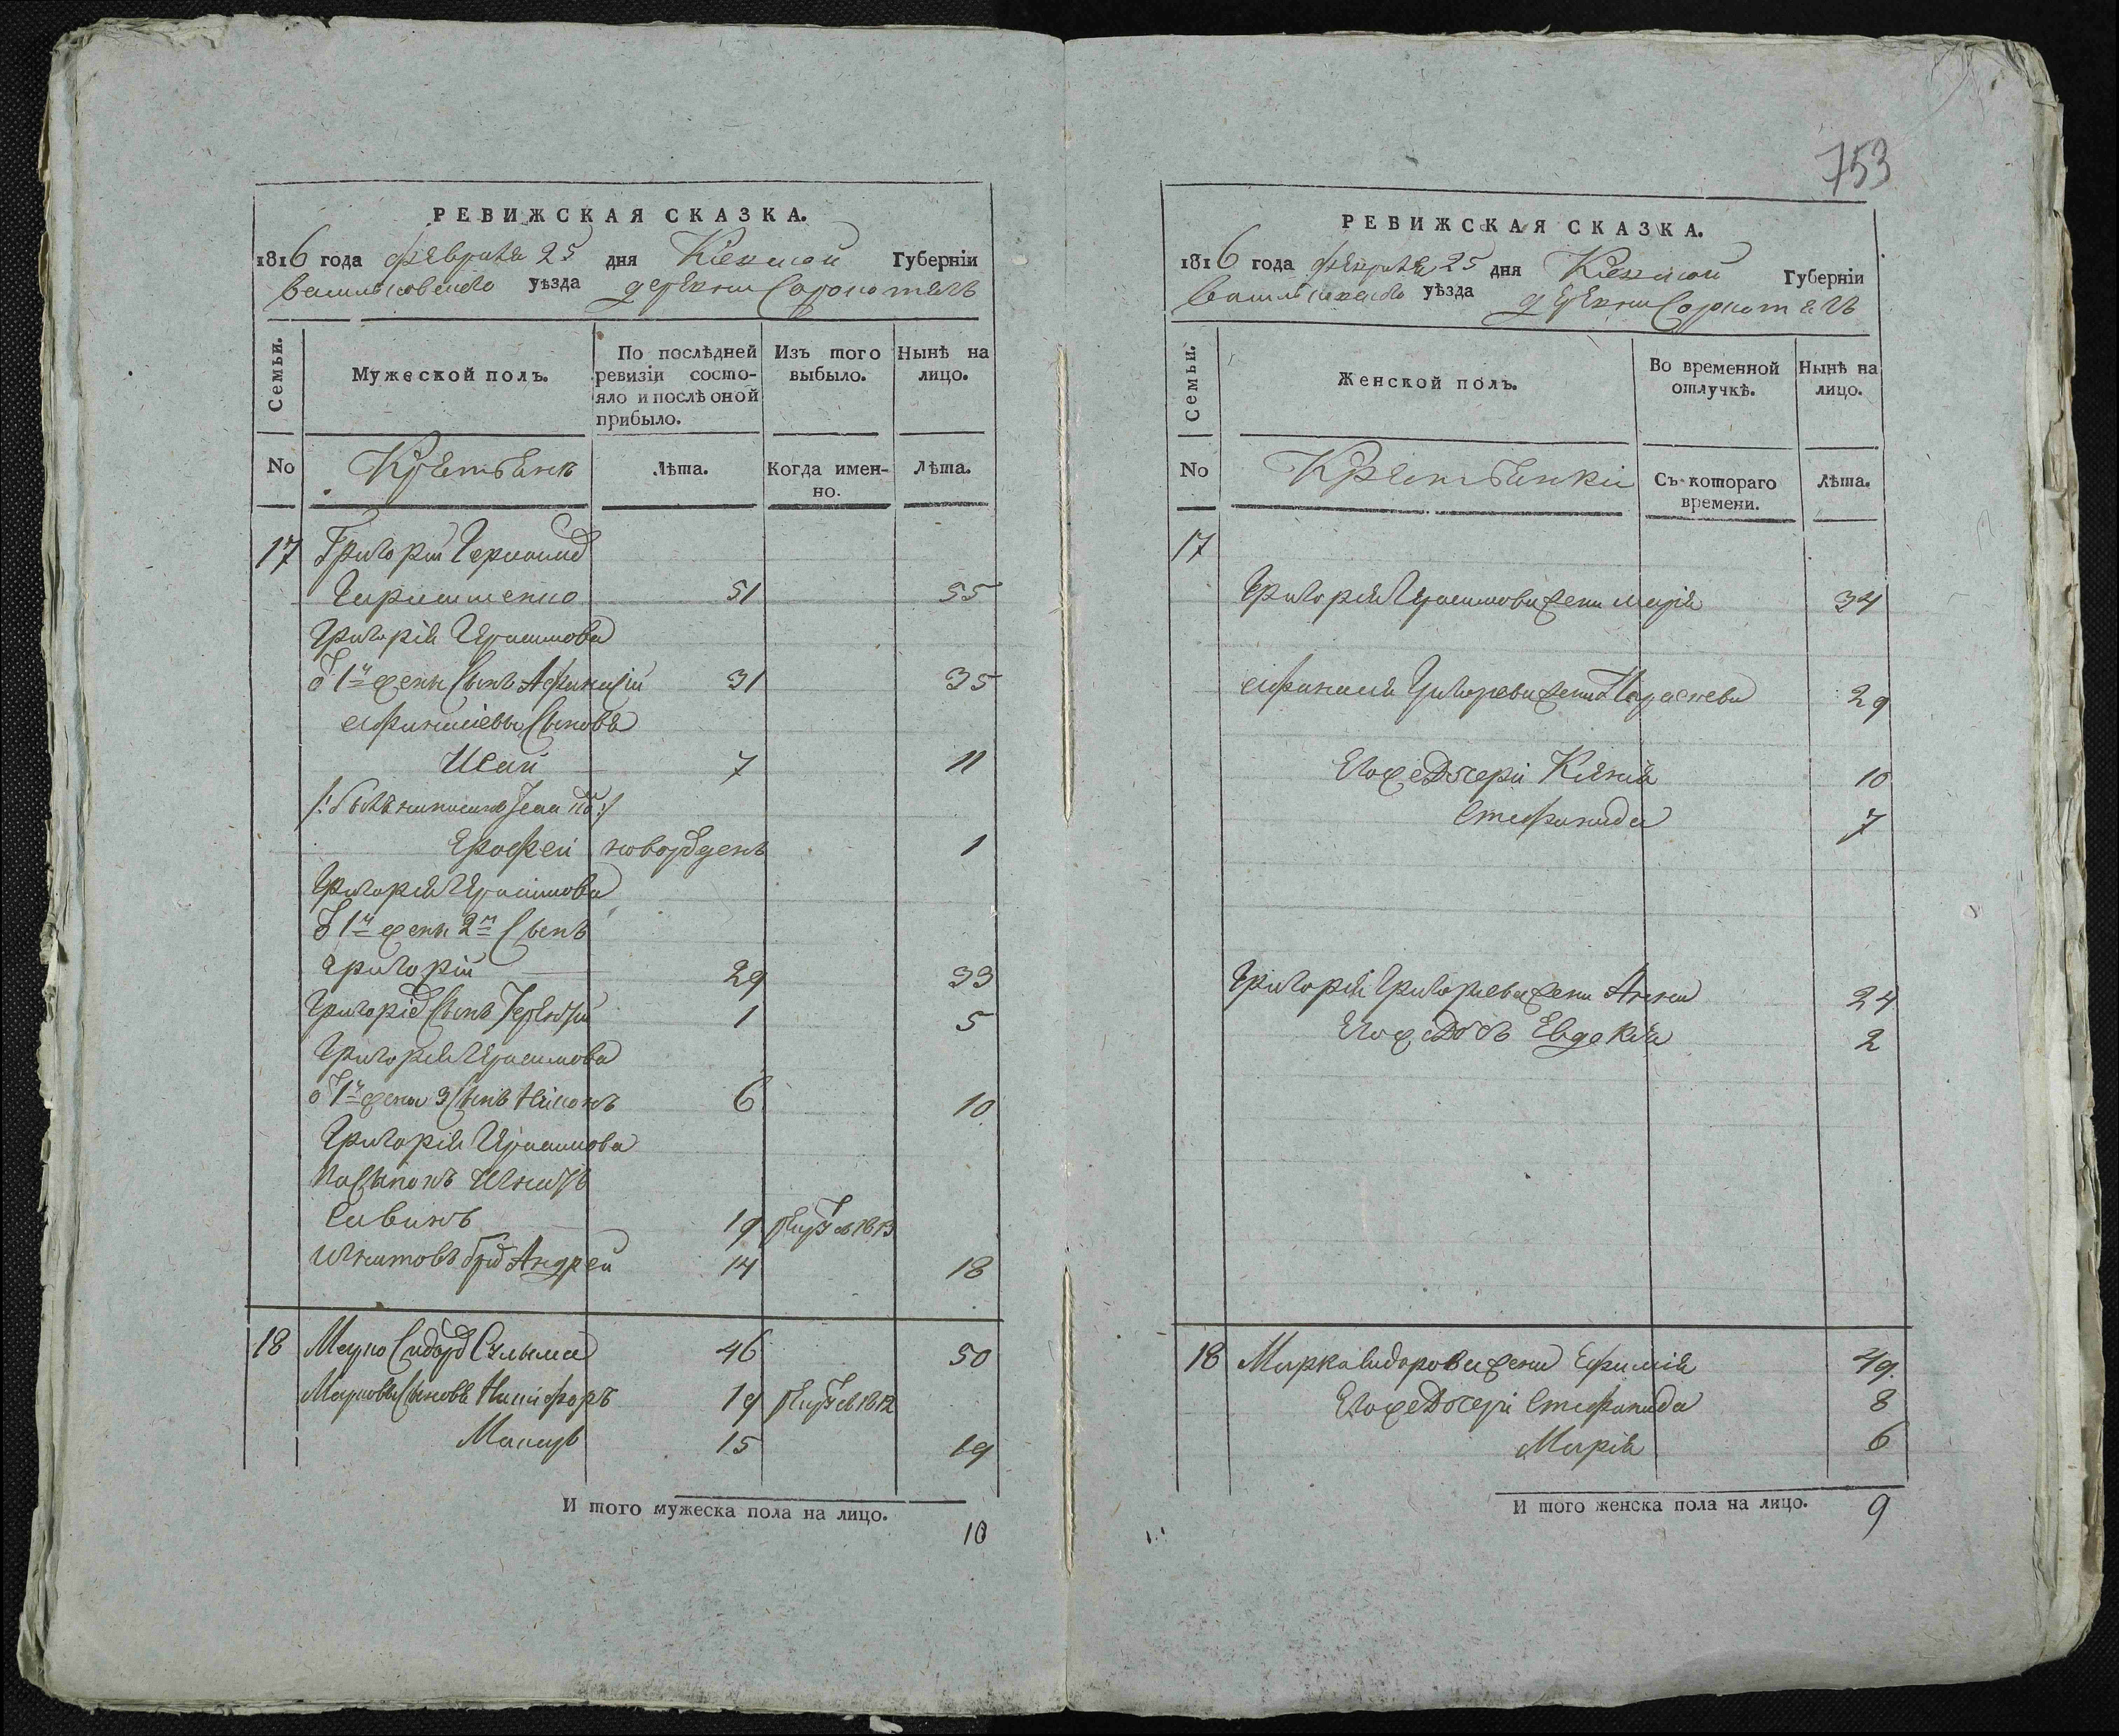 РЕВИЖСКАЯ СКАЗКА.
1816 года февраля 25 дня Киевской Губернїи
Васильковского уѣзда деревни Сорокотягъ
Семьи.
Мужеской полъ.
По послѣдней ревизїи состояло и послѣ оной прибыло.
Изъ того выбыло.
Нынѣ на лицо.
No
Крестьянъ
Лѣта.
Когда именно.
Лѣта.
17 Григорій
51 55
Григорій Герасимова
1й жены Сынъ Афанасій 31 35
Афанасіевы Сыновя
Исай 7 11
Ерофей новорожденъ 1
Григорія Герасимова
1й жены 2й Сынъ
Григорій 29 33
Григорія Сынъ Терентій 1 5
Григорія Герасимова
1й жены 3 Сынъ Никонъ 6 10
Григорія Герасимова
Пасынокъ Игнатъ
Савинъ 19 1813
Игнатовъ братъ Андрей 14 18
18 Марко Сидоровъ 46 50
Марковы Сыновя Никифоръ 19 1812
Макаръ 15 19
И того мужеска пола на лицо.
10
753
РЕВИЖСКАЯ СКАЗКА.
1816 года февраля 25 дня Киевской Губернїи
Васильковского уѣзда деревни Сорокотягъ
Семьи.
Женской полъ.
Во временной отлучкѣ.
Нынѣ на лицо.
No
Крестьянки
Съ котораго времени.
Лѣта.
17
Григорія Герасимова жена Марія 34
Афанасія Григорева жена Параскева 29
Егоже Дочери Ксенія 10
Степанида 7
Григорія Григорьева жена Анна 24
Егоже Дочь Евдокія 2
18 Марка Сидорова жена Ефимія 49.
Егоже Дочери Степанида 8
Марія 6
И того женска пола на лицо. 9